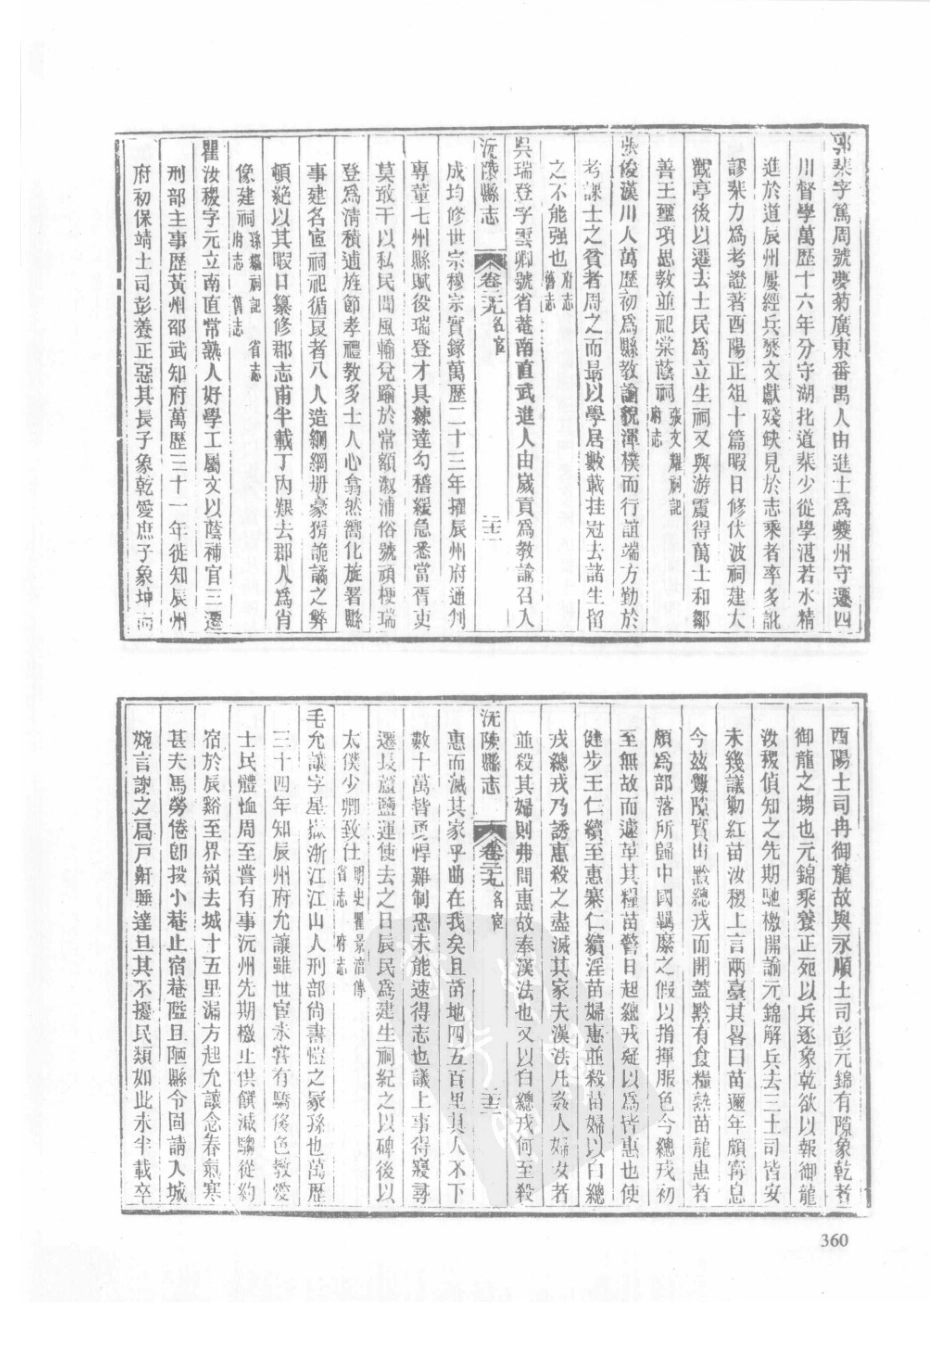 郭棐字篤周號夢菊廣東番禺人由進士爲夔州守遷四
川督學萬歷十六年分守湖北道棐少從學湛若水精
進於道辰州屢經兵焚文獻殘缺見於志乘者率多訛
謬棐力爲考證著酉陽正俎十篇暇日修伏波祠建大
觀亭後以遷去士民爲立生祠又與游震得萬士和鄒
善王璽項思教並祀棠蔭祠張文耀祠記
府志
張俊漢川人萬歷初爲縣教諭貌渾樸而行誼端方勤於
考課士之貧者周之而最以學居數載挂冠去諸生留
之不能强也府志
舊志
吳瑞登字雲卿號省菴南直武進人由歲貢爲教諭召入
沅陵縣志 卷二十九名宦 二十二
成均修世宗穆宗實錄萬歷二十三年擢辰州府通判
專董七州縣賦役瑞登才具練達勾稽緩急悉當胥吏
莫敢干以私民間風輸兌踰於常額漵浦俗號頑梗瑞
登爲清積逋旌節孝禮教多士人心翕然嚮化旋署縣
事建名宦祠祀循良者八人造綱綱册豪猾詭譎之弊
頓絶以其暇日纂修郡志甫半載丁內艱去郡人爲肖
像建祠孫繼祠記 省志
府志 舊志
瞿汝稷字元立南直常熟人好學工屬文以蔭補官三遷
刑部主事歷黃州邵武知府萬歷三十一年徙知辰州
府初保靖土司彭養正惡其長子象乾愛庶子象坤而
酉陽土司冉御龍故與永順土司彭元錦有隙象乾者
御龍之壻也元錦乘養正死以兵逐象乾欲以報御龍
汝稷偵知之先期馳檄開諭元錦解兵去三土司皆安
未幾議勦紅苗汝稷上言兩臺其畧曰苗邇年頗寗息
今玆釁隙實由黔總戎而開蓋黔有食糧熟苗龍惠者
頗爲部落所歸中國羈縻之假以指揮服色今總戎初
至無故而遽革其糧苗警日起總戎疑以爲皆惠也使
健步王仁續至惠寨仁續淫苗婦惠並殺苗婦以白總
戎總戎乃誘惠殺之盡滅其家夫漢法凡姦人婦女者
並殺其婦則弗問惠故奉漢法也又以白總戎何至殺
沅陵縣志 卷二十九名宦 二十三
惠而滅其家乎曲在我矣且苗地四五百里其人不下
數十萬皆勇悍難制恐未能速得志也議上事得寢尋
遷長蘆鹽運使去之日辰民爲建生祠紀之以碑後以
太僕少卿致仕明史瞿景淳傳
省志 府志
毛允讓字星嶽浙江江山人刑部尚書愷之冢孫也萬歷
三十四年知辰州府允讓雖世宦未嘗有驕侈色敦愛
士民體恤周至嘗有事沅州先期檄止供饌減騶從約
宿於辰谿至界嶺去城十五里漏方起允讓念春氣寒
甚夫馬勞倦卽投小菴止宿巷隘且陋縣令固請入城
婉言謝之扃戶鼾睡達旦其不擾民類如此未半載卒
360